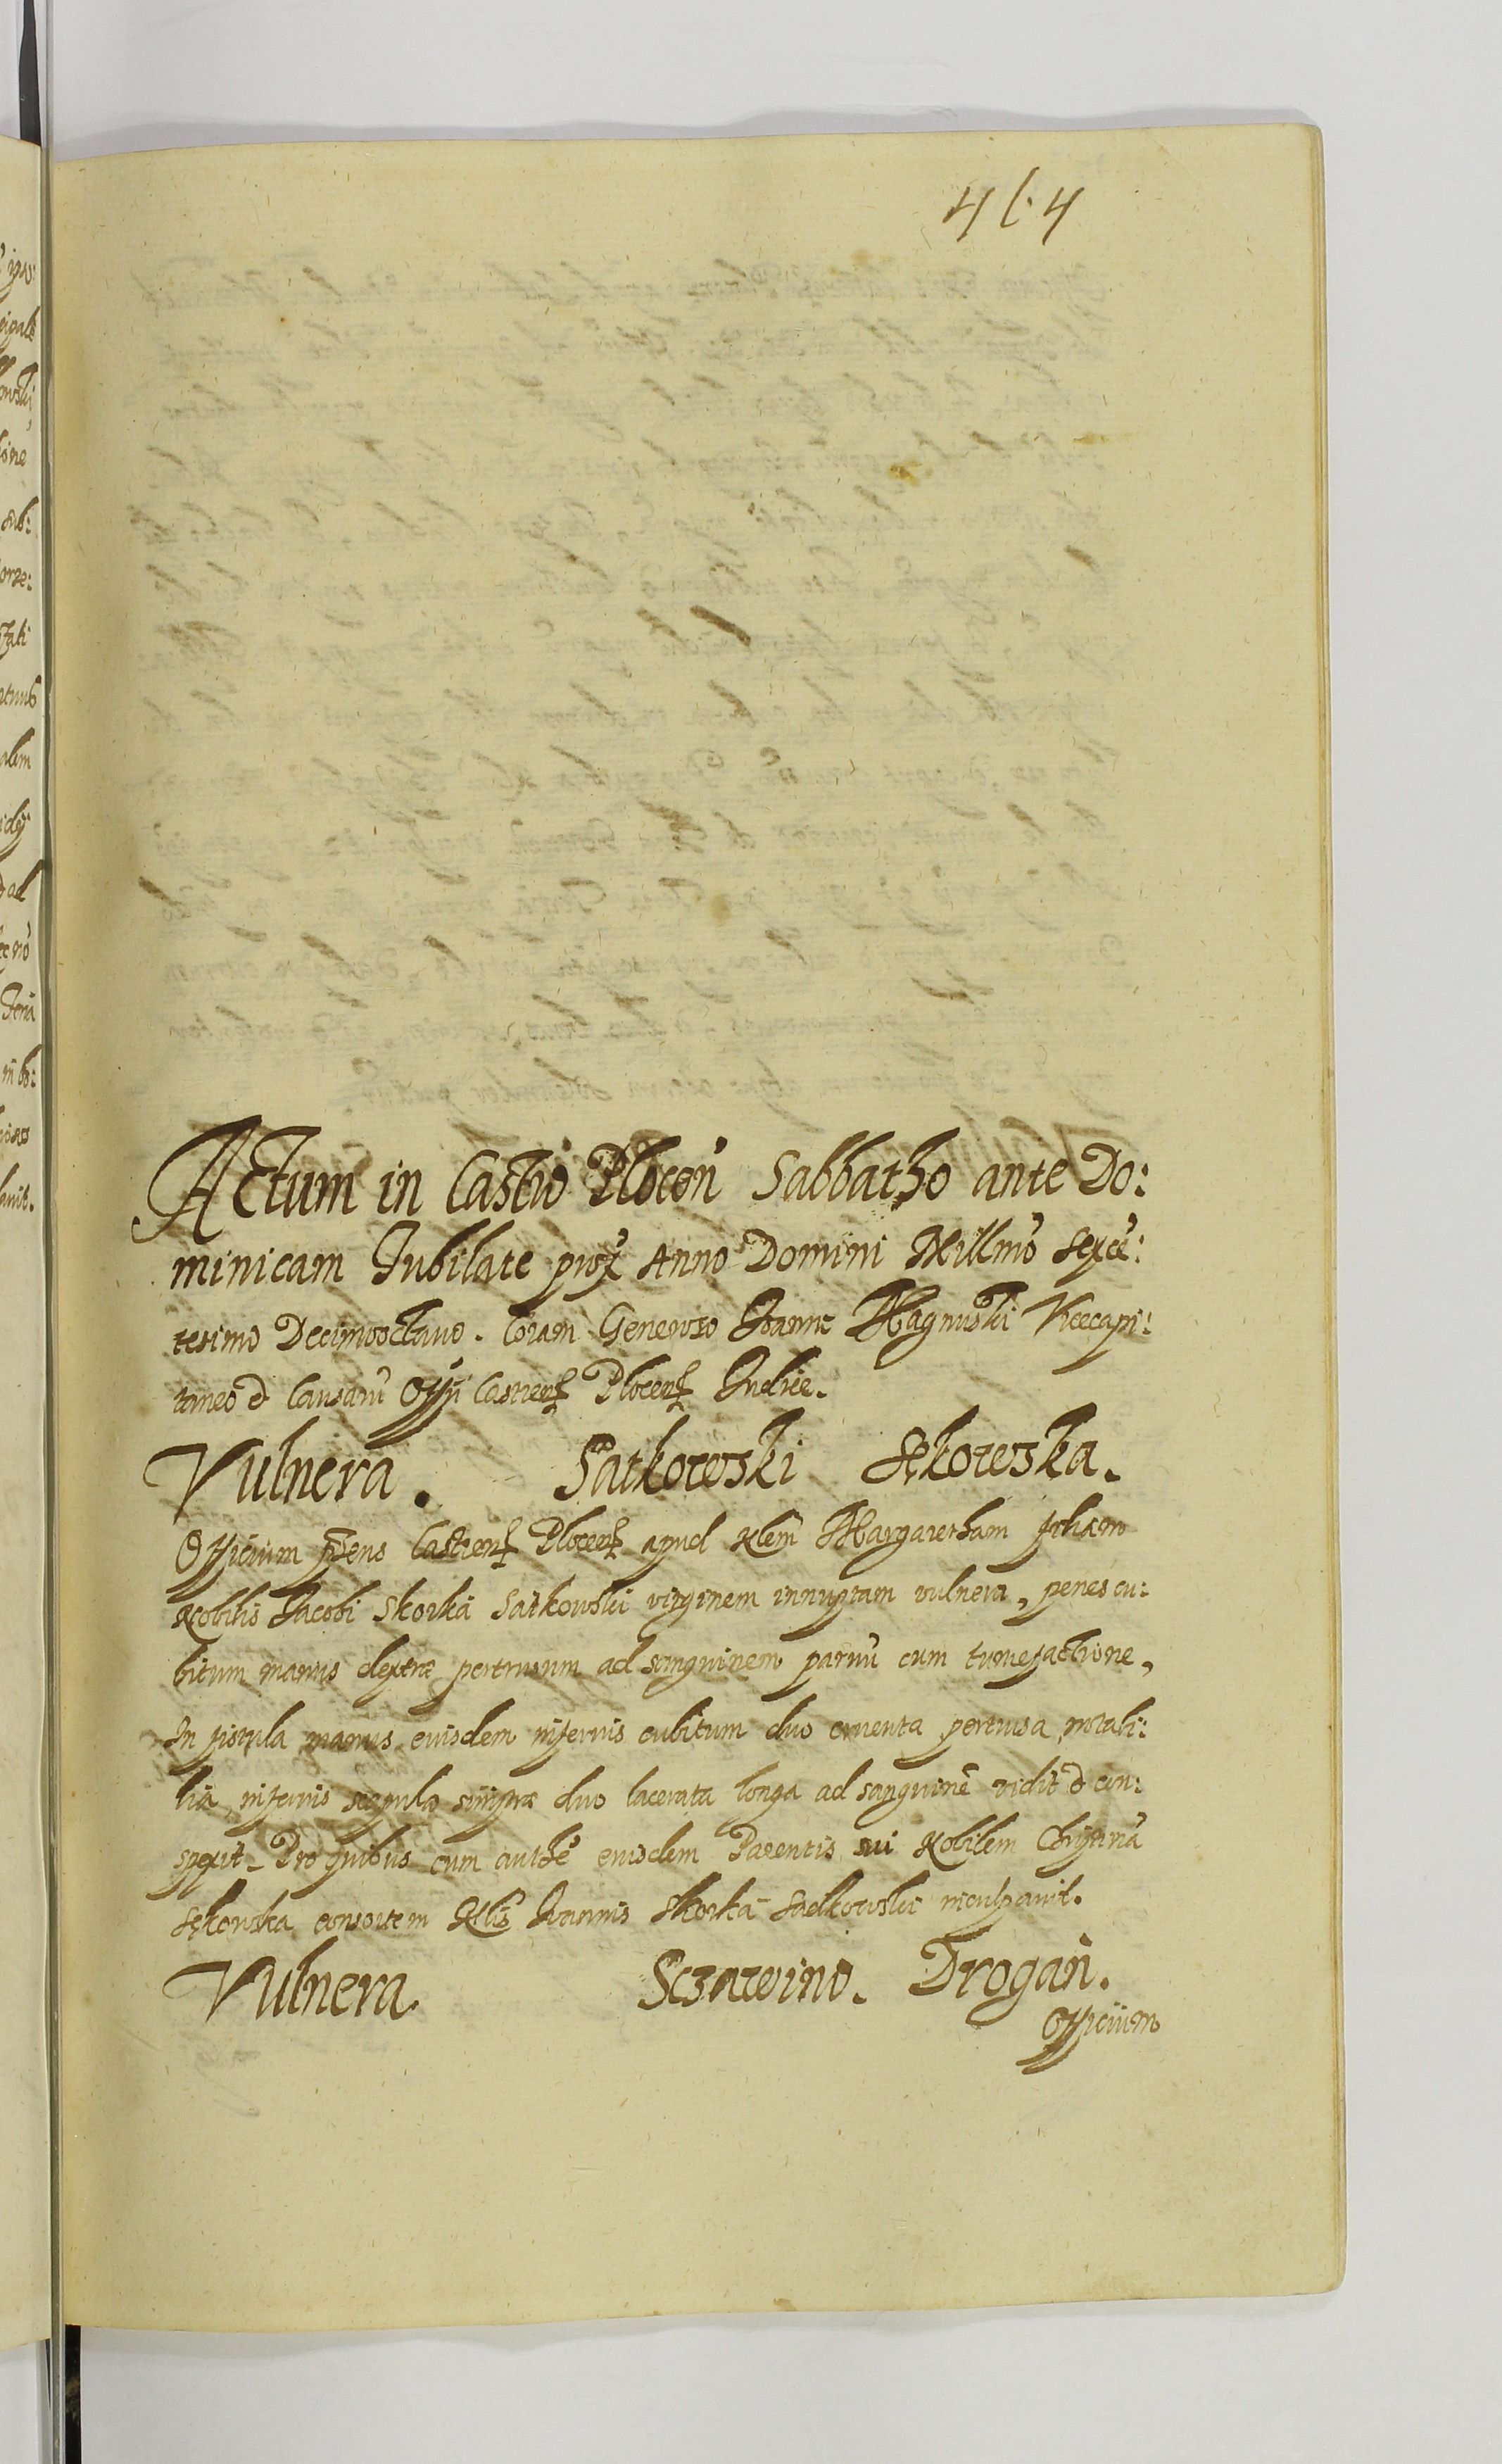 414
Actum in Castro Plocen̄ Sabbatho ante Do:
minicam Jubilate prox Anno Domini Millmō Sexcē:
tesimo Decimooctavo. Coram Generoso Joanne Magnuski Vicecapi:
taneo & Causarū Offij Castren̄ Plocen̄ Judice.
Vulnera. Satkowski Sękowska.
Officium p̄sens Castren̄ Plocen̄ apud Nlem Margaretham filiam
Nobilis Jacobi Skorka Satkowski virginem innuptam vulnera, penes cu:
bitum manus dextræ pertusum ad sanguinem parvū cum tumefactione,
In fistula manus eiusdem infervis cubitum duo cruenta pertusa notabi:
lia, infervis scapulæ sinistræ duo lacerata longa ad sanguinē vidit & con:
spexit. Pro quibus cum authē eiusdem Parentis sui Nobilem
Sękowska consortem Nlis Joannis Skorka Sadkowski inculpavit.
Vulnera. Sczawino. Drogan̄.
Officium